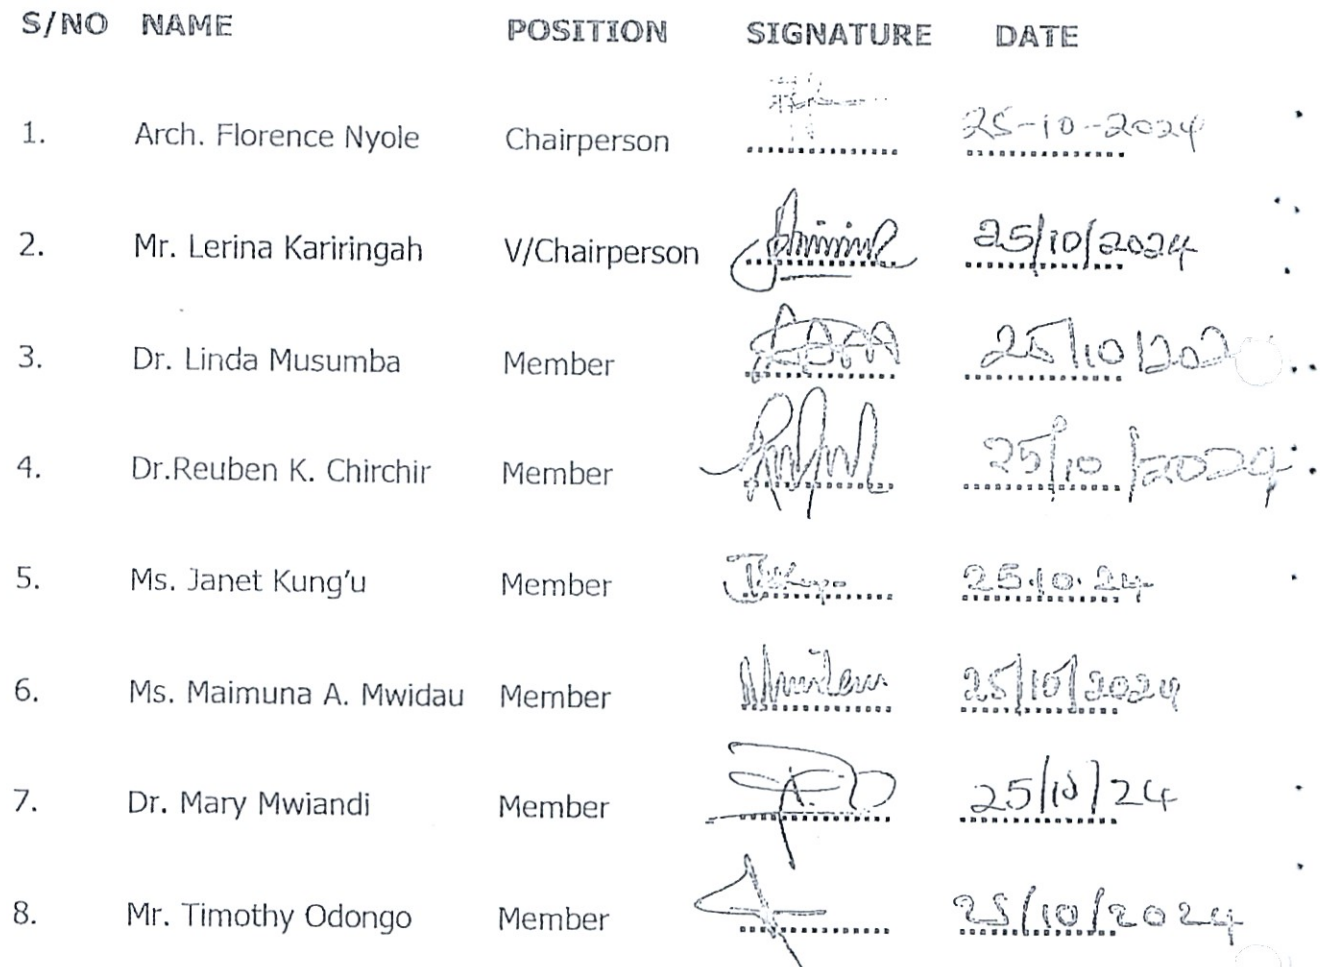 S/NO NAME POSITION SIGNATURE DATE
1. Arch. Florence Nyole Chairperson 25-10-2024
2. Mr. Lerina Kariringah V/Chairperson 25/10/2024
3. Dr. Linda Musumba Member 25/10/202
4. Dr.Reuben K. Chirchir Member 25/10/2024
5. Ms. Janet Kung'u Member 25.10.24
6. Ms. Maimuna A. Mwidau Member 25/10/2024
7. Dr. Mary Mwiandi Member 25/10/24
8. Mr. Timothy Odongo Member 25/10/2024